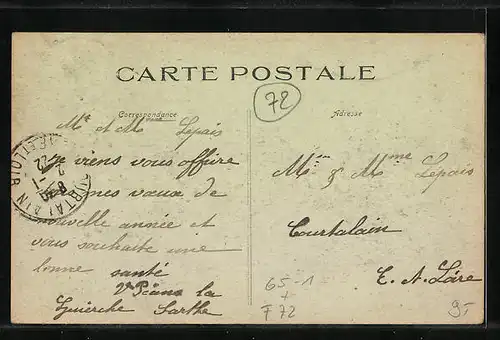 CARTE POSTALE
72
Correspondance
Adresse
Mr et Mme Lepais
je viens vous offrire
mes vœux de
nouvelle année et
vous souhaite une
bonne santé
la
Guierche Sarthe
Mme Lepais
Courtalain
E. A. Loire
65-1
+
F 72
9-
COURTALAIN
EURE-ET-LOIR